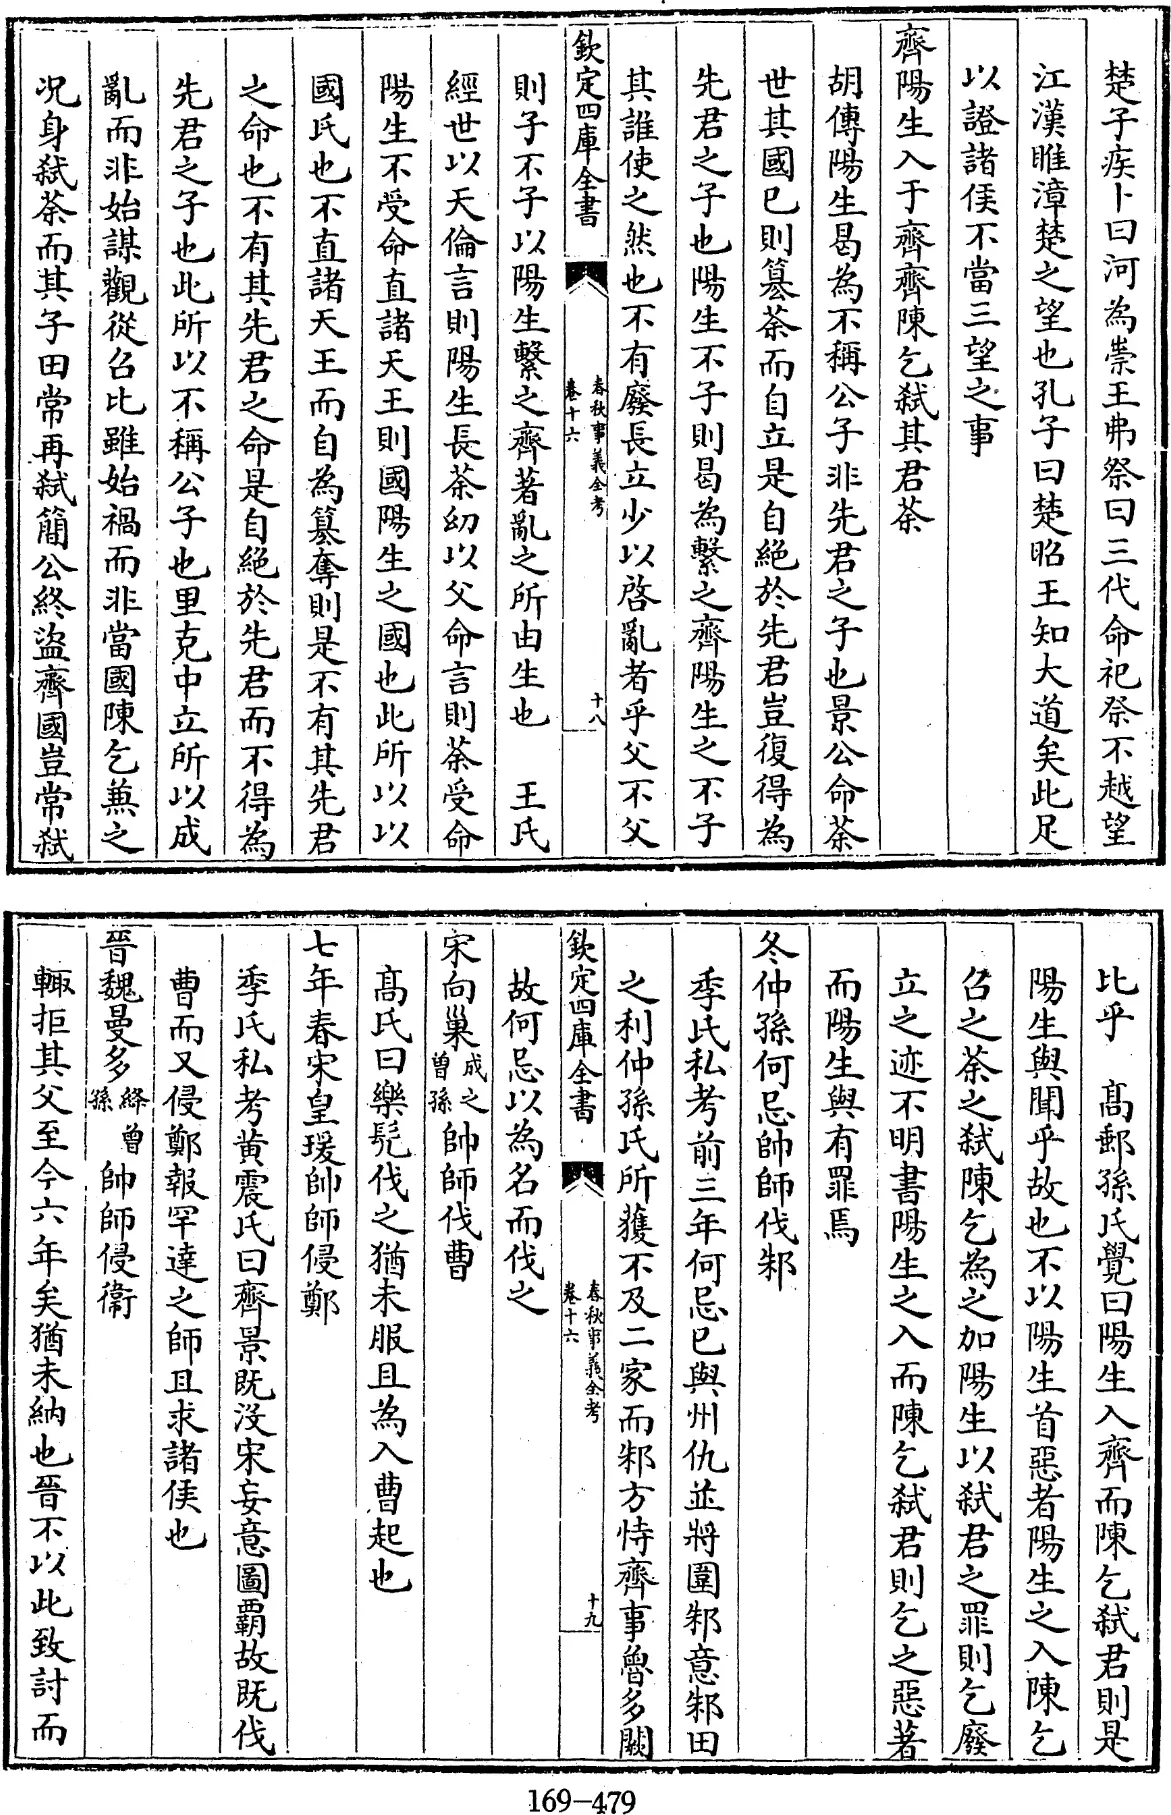 楚子疾卜曰河為祟王弗祭曰三代命祀祭不越望
江漢睢漳楚之望也孔子曰楚昭王知大道矣此足
以證諸侯不當三望之事
齊陽生入于齊齊陳乞弑其君荼
胡傳陽生曷為不稱公子非先君之子也景公命荼
世其國已則簒荼而自立是自絶於先君豈復得為
先君之子也陽生不子則曷為繫之齊陽生之不子
其誰使之然也不有廢長立少以啓亂者乎父不父
欽定四庫全書
春秋事義全考
卷十六
十八
則子不子以陽生繫之齊著亂之所由生也　王氏
經世以天倫言則陽生長荼幼以父命言則荼受命
陽生不受命直諸天王則國陽生之國也此所以以
國氏也不直諸天王而自為簒奪則是不有其先君
之命也不有其先君之命是自絶於先君而不得為
先君之子也此所以不稱公子也里克中立所以成
亂而非始謀觀從召比雖始禍而非當國陳乞蕪之
况身弑荼而其子田常再弑簡公終盜齊國豈常弑
比乎　髙郵孫氏覺曰陽生入齊而陳乞弑君則是
陽生與聞乎故也不以陽生首惡者陽生之入陳乞
召之荼之弑陳乞為之加陽生以弑君之罪則乞廢
立之迹不明書陽生之入而陳乞弑君則乞之惡著
而陽生與有罪焉
冬仲孫何忌帥師伐邾
季氏私考前三年何忌已與州仇並將圍邾意邾田
之利仲孫氏所獲不及二家而邾方恃齊事魯多闕
欽定四庫全書
春秋事義全考
卷十六
十九
故何忌以為名而伐之
宋向巢成之曾孫帥師伐曹
髙氏曰樂髠伐之猶未服且為入曹起也
七年春宋皇瑗帥師侵鄭
季氏私考黄震氏曰齊景既没宋妄意圖霸故既伐
曹而又侵鄭報罕達之師且求諸侯也
晉魏曼多絳曾孫帥師侵衞
輙拒其父至今六年矣猶未納也晉不以此致討而
169-479